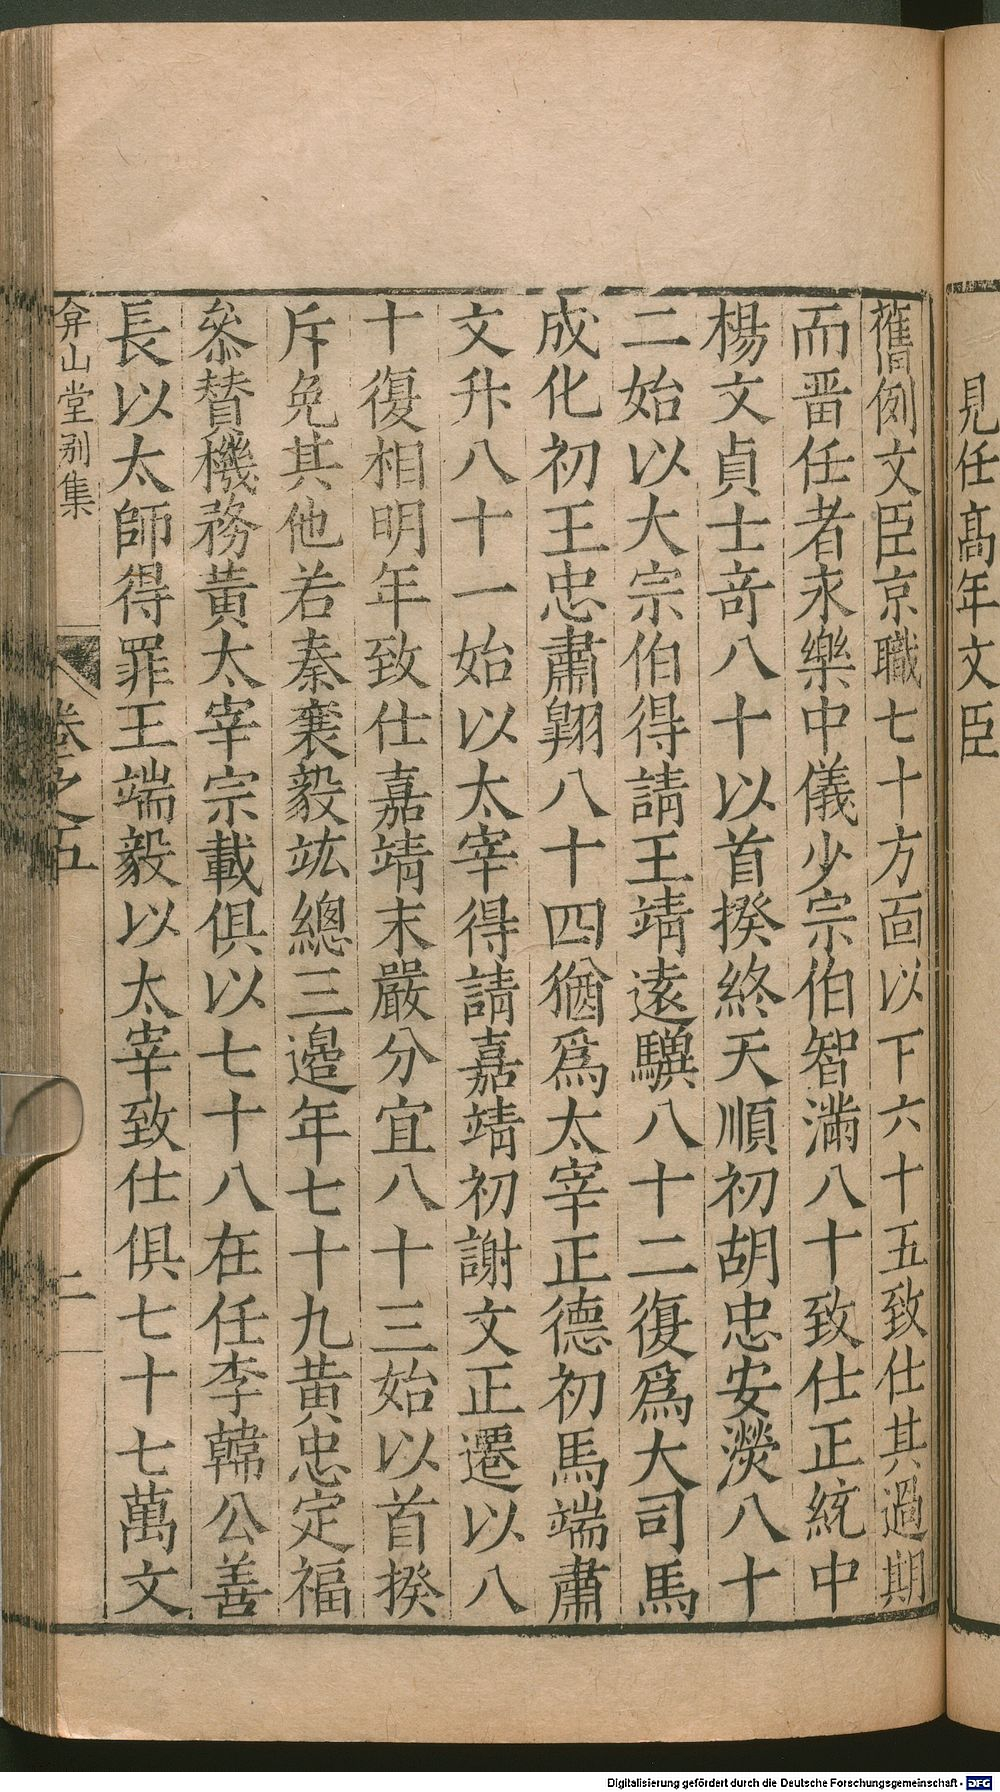 見任高年文臣
舊例文臣京職七十方面以下六十五致仕其過期
而畱任者永樂中儀少宗伯智滿八十致仕正統中
楊文貞士竒八十以首揆終天順初胡忠安濙八十
二始以大宗伯得請王靖遠驥八十二復爲大司馬
成化初王忠肅翱八十四猶爲太宰正德初馬端肅
文升八十一始以太宰得請嘉靖初謝文正遷以八
十復相明年致仕嘉靖末嚴分宜八十三始以首揆
斥免其他若秦襄毅竑總三邉年七十九黃忠定福
叅替機務黃太宰宗載俱以七十八在任李韓公善
長以太師得罪王端毅以太宰致仕俱七十七萬文
弇山堂别集
卷之五
二
Digitalisierung gefördert durch die Deutsche Forschungsgemeinschaft - DFG